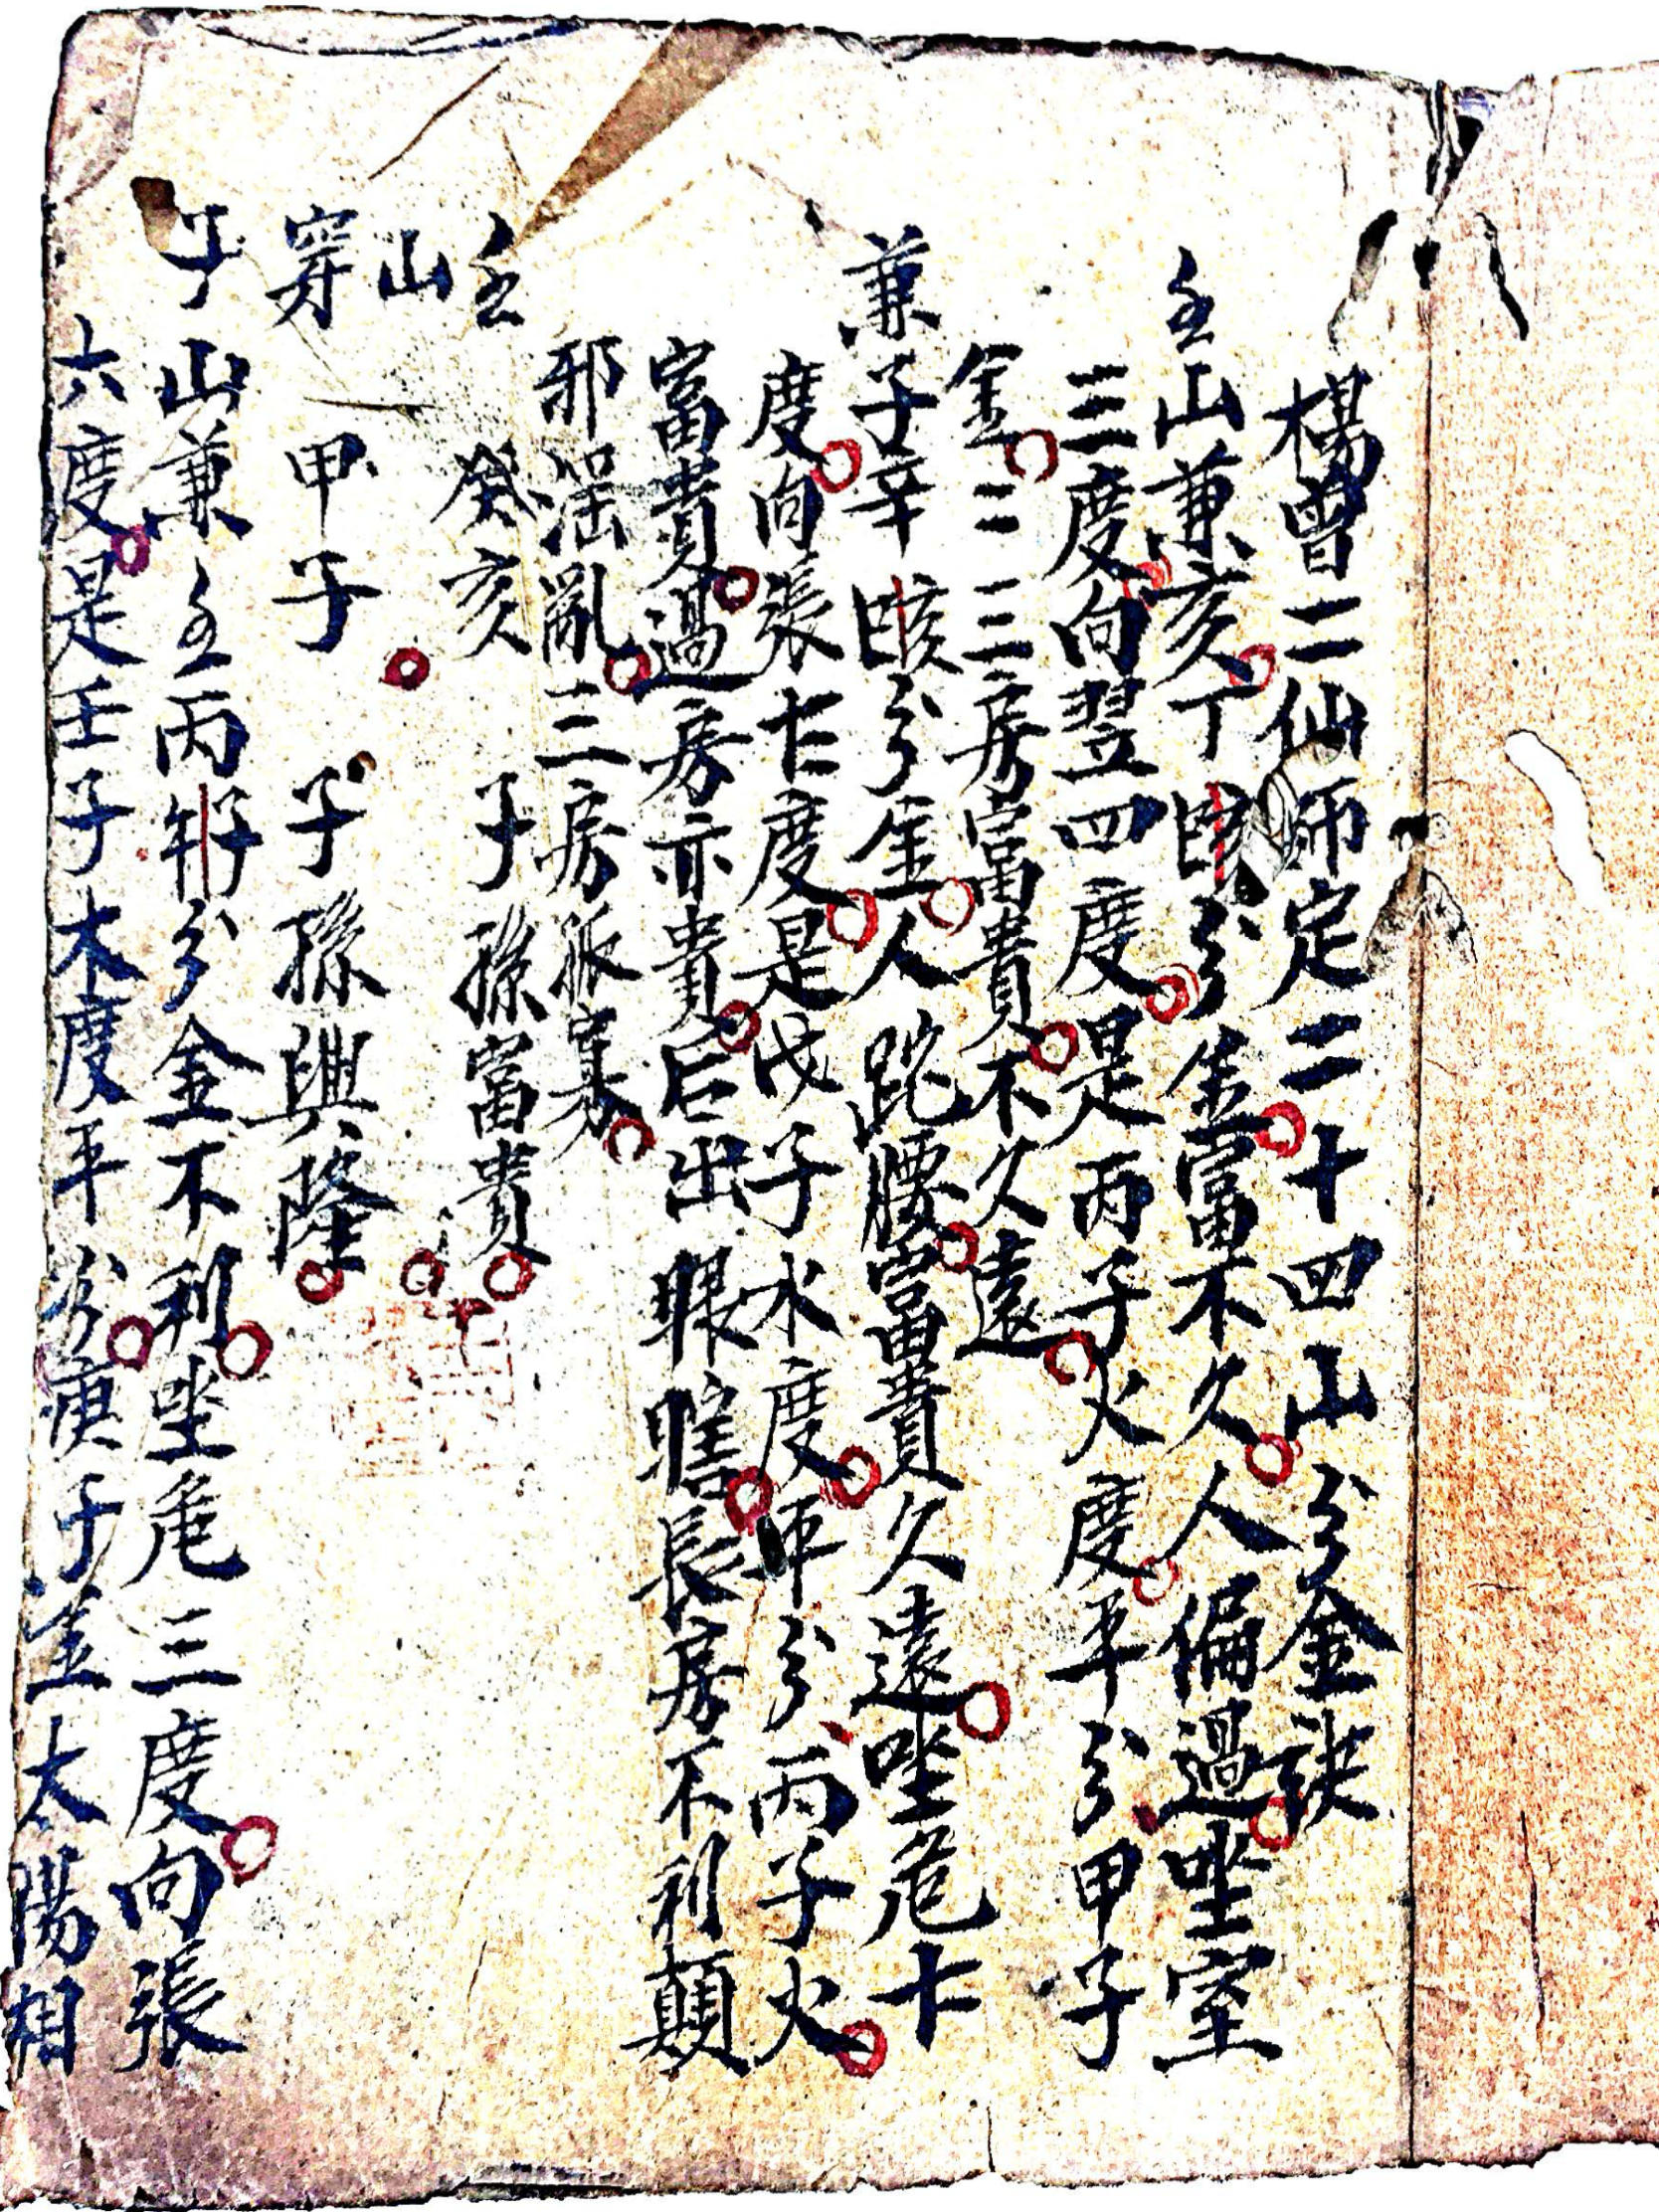 楊曾二仙師定二十四山分金訣
壬山兼亥丁巳亥分金富不久人偏過坐室
三度向翌四度是丙子火度平分甲子
金二三房富貴不久遠
兼子辛巳亥分金人跎腰富貴久遠坐危七
度向張七度是戊子水度平分丙子火
富貴過房亦貴后出眼瞎長房不利顛
邪淫亂三房孤寡
壬 癸亥 子孫富貴
山
穿 甲子 子孫興隆
子山兼壬丙午子分金不利坐危三度向張
六度是壬子木度平分庚子金太陽相